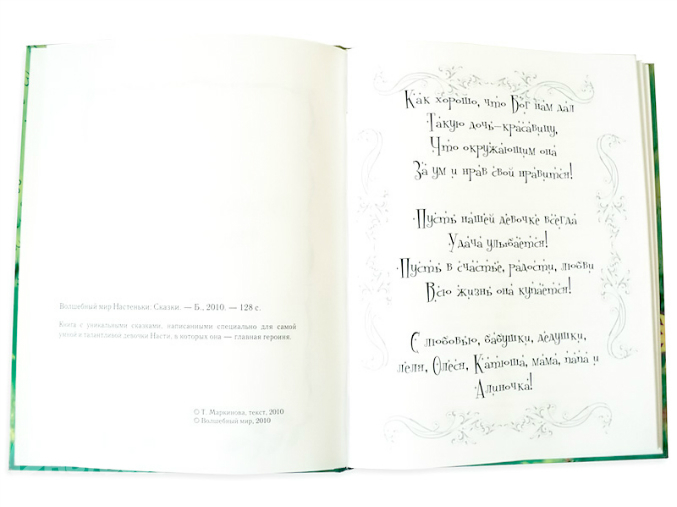 Волшебный мир Настеньки: Сказки. — Б., 2010. — 128 с.
Книга с уникальными сказками, написанными специально для самой
умной и талантливой девочки Насти, в которых она — главная героиня.
© Т. Маркинова, текст, 2010
© Волшебный мир, 2010
Как хорошо, что Бог нам дал
Такую дочь-красавицу,
Что окружающим она
За ум и нрав свой нравится!
Пусть нашей девочке всегда
Удача улыбается!
Пусть в счастье, радости, любви
Всю жизнь она купается!
С любовью, бабушки, дедушки,
Олеся, Катюша, мама, папа и
Алиночка!